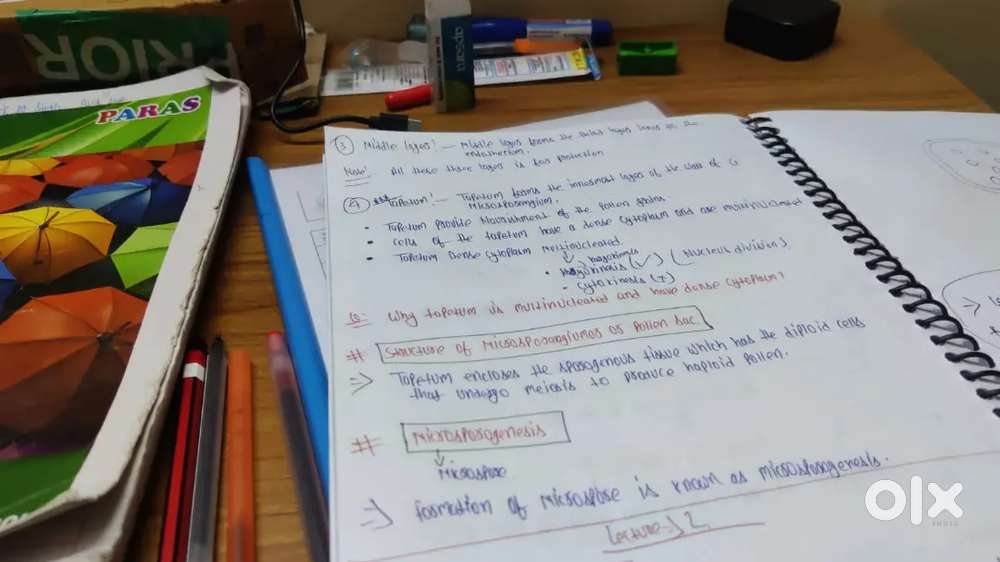 PRIOR
PARAS
apsara
③ Middle layer:- Middle layer forms the third layer inner to the
endothecium.
Note:- All these three layer is for protection
④ Tapetum:- Tapetum forms the innermost layer of the wall of a
Microsporangium.
• Tapetum provide Nourishment of the pollen grains
• Cells of the tapetum have a dense cytoplasm and are multinucleated
• Tapetum Dense cytoplasm multinucleated
• Karyokinesis (✓) (Nucleus division)
• cytokinesis (×)
Q:- Why tapetum is multinucleated and have dense cytoplasm?
# Structure of Microsporangiumos or Pollen Sac
=> Tapetum encloses the sporogenous tissue which has the diploid cells
that undergo meiosis to produce haploid Pollen.
# Microsporogenesis
↓
Microspore
=> Formation of Microspore is known as microsporogenesis.
Lecture → 2
olx
INDIA